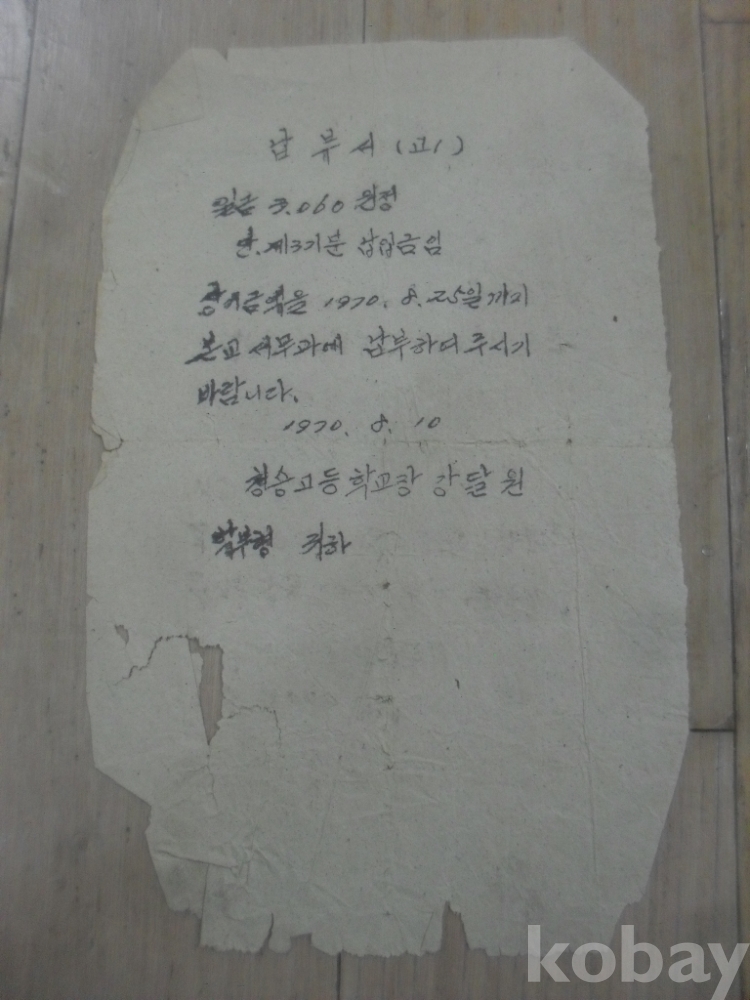 납부서 (고1)
일금 3.060 원정
단. 제3기분 납입금임
상기금액을 1970. 8. 25일까지
본교 서무과에 납부하여 주시기
바랍니다.
1970. 8. 10
청송고등학교장 강달원
학부형 귀하
kobay